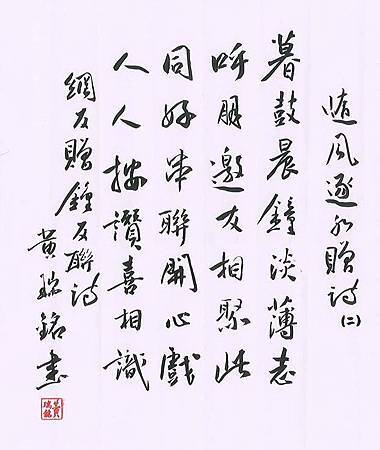 隨風逐水贈詩(二)
暮鼓晨鐘淡薄志
呼朋邀友相聚此
同好串聯開心戲
人人按讚喜相識
網友贈鐘友聯詩
黃瑞銘書
黃瑞銘